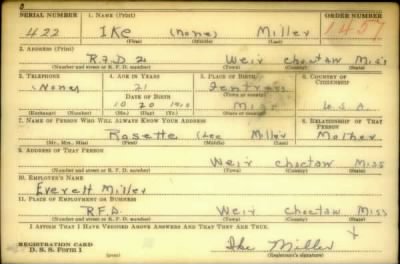 SERIAL NUMBER 1. NAME (Print) ORDER NUMBER
422 Ike (None) Miller 1457
(First) (Middle) (Last)
2. ADDRESS (Print)
R.F.D 2 Weir Choctaw Miss
(Number and street or R. F. D. number) (Town) (County) (State)
3. TELEPHONE 4. AGE IN YEARS 5. PLACE OF BIRTH 6. COUNTRY OF CITIZENSHIP
None 21 Fentress
DATE OF BIRTH (Town or county)
10 20 Miss U.S.A.
(Exchange) (Number) (Mo.) (Day) (Yr.) (State or country)
7. NAME OF PERSON WHO WILL ALWAYS KNOW YOUR ADDRESS 8. RELATIONSHIP OF THAT PERSON
Rosette Lee Miller Mother
(Mr., Mrs., Miss) (First) (Middle) (Last)
9. ADDRESS OF THAT PERSON
Weir Choctaw Miss
(Number and street or R. F. D. number) (Town) (County) (State)
10. EMPLOYER'S NAME
Everett Miller
11. PLACE OF EMPLOYMENT OR BUSINESS
R.F.D. Weir Choctaw Miss
(Number and street or R. F. D. number) (Town) (County) (State)
I AFFIRM THAT I HAVE VERIFIED ABOVE ANSWERS AND THAT THEY ARE TRUE.
REGISTRATION CARD
D. S. S. Form 1 (over) Ike Miller
(Registrant's signature)